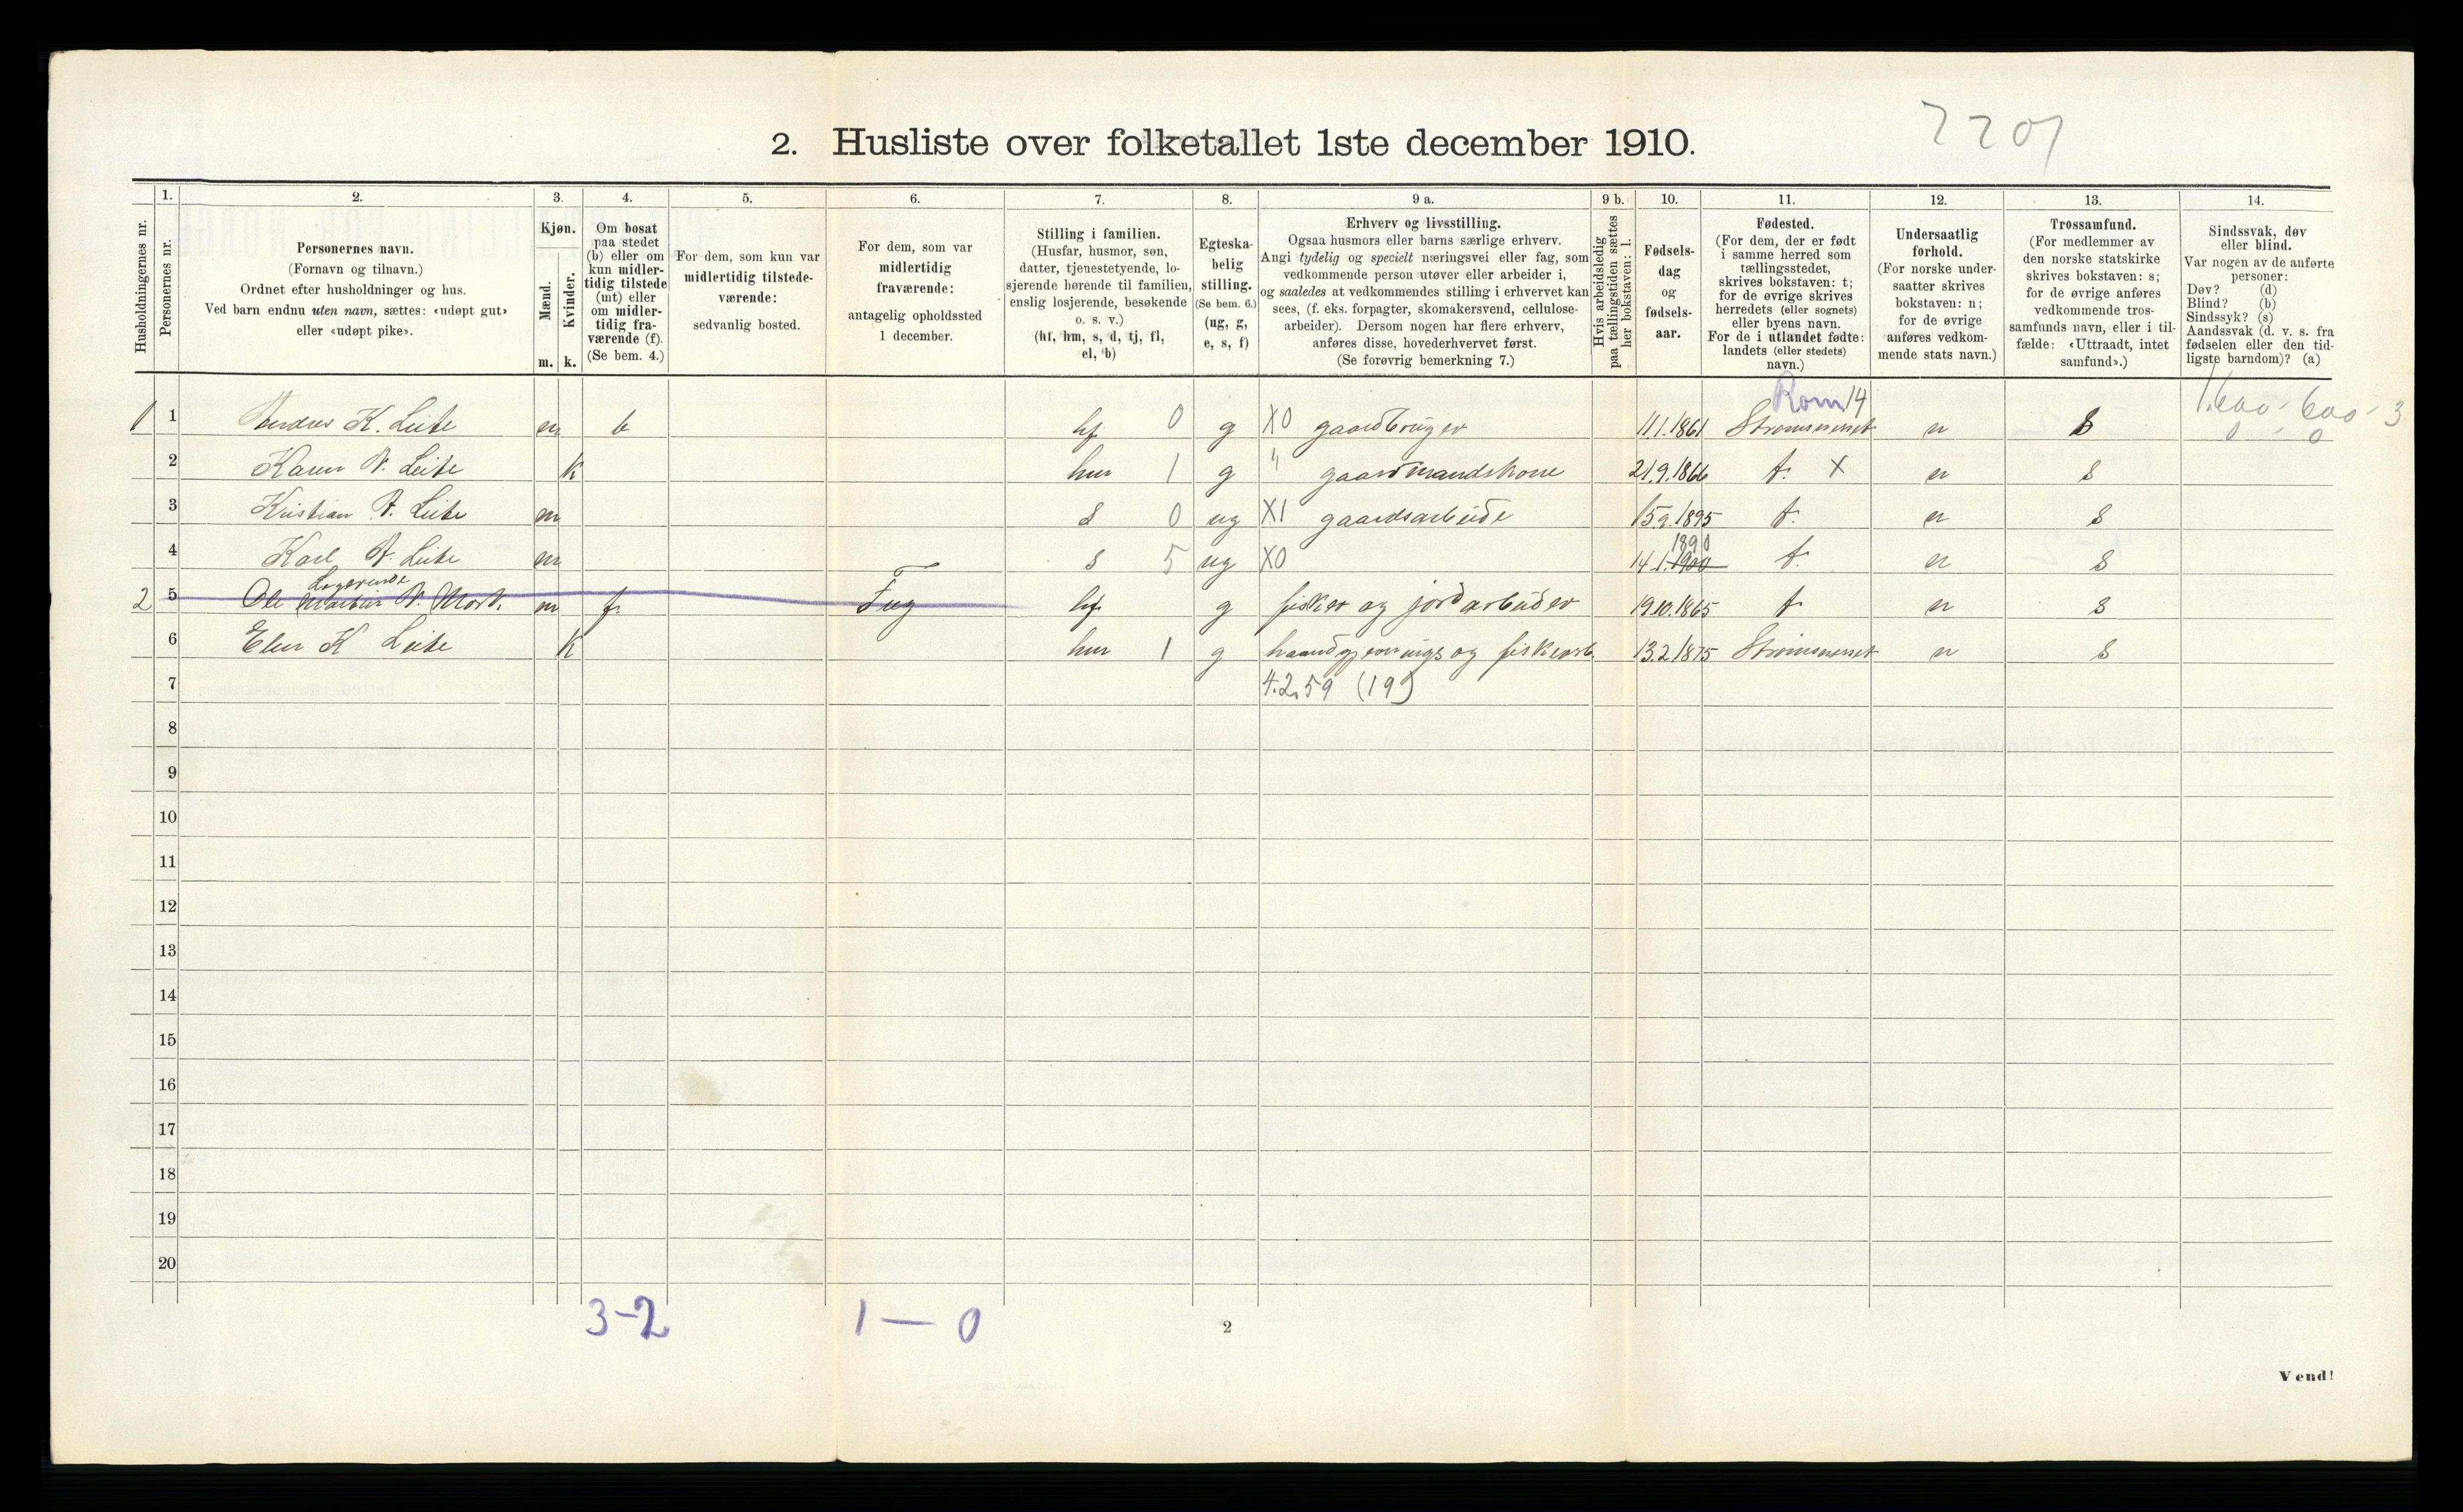 2. Husliste over folketallet 1ste december 1910.
2201
Husholdningernes nr.
1.
Personernes nr.
2.
Personernes navn.
(Fornavn og tilnavn.)
Ordnet efter husholdninger og hus.
Ved barn endnu uten navn, sættes: «udøpt gut»
eller «udøpt pike».
3.
Kjøn.
Mænd.
Kvinder.
m. k.
4.
Om bosat
paa stedet
(b) eller om
kun midler-
tidig tilstede
(mt) eller
om midler-
tidig fra-
værende (f).
(Se bem. 4.)
5.
For dem, som kun var
midlertidig tilstede-
værende:
sedvanlig bosted.
6.
For dem, som var
midlertidig
fraværende:
antagelig opholdssted
1 december.
7.
Stilling i familien.
(Husfar, husmor, søn,
datter, tjenestetyende, lo-
sjerende hørende til familien,
enslig losjerende, besøkende
o. s. v.)
(hf, hm, s, d, tj, fl,
el, b)
8.
Egteska-
belig
stilling.
(Se bem. 6.)
(ug, g,
e, s, f)
9 a.
Erhverv og livsstilling.
Ogsaa husmors eller barns særlige erhverv.
Angi tydelig og specielt næringsvei eller fag, som
vedkommende person utøver eller arbeider i,
og saaledes at vedkommendes stilling i erhvervet kan
sees, (f. eks. forpagter, skomakersvend, cellulose-
arbeider). Dersom nogen har flere erhverv,
anføres disse, hovederhvervet først.
(Se forøvrig bemerkning 7.)
9 b.
Hvis arbeidsledig
paa tællingstiden sættes
her bokstaven: l.
10.
Fødsels-
dag
og
fødsels-
aar.
11.
Fødested.
(For dem, der er født
i samme herred som
tællingsstedet,
skrives bokstaven: t;
for de øvrige skrives
herredets (eller sognets)
eller byens navn.
For de i utlandet fødte:
landets (eller stedets)
navn.)
12.
Undersaatlig
forhold.
(For norske under-
saatter skrives
bokstaven: n;
for de øvrige
anføres vedkom-
mende stats navn.)
13.
Trossamfund.
(For medlemmer av
den norske statskirke
skrives bokstaven: s;
for de øvrige anføres
vedkommende tros-
samfunds navn, eller i til-
fælde: «Uttraadt, intet
samfund».)
14.
Sindssvak, døv
eller blind.
Var nogen av de anførte
personer:
Døv? (d)
Blind? (b)
Sindssyk? (s)
Aandssvak (d. v. s. fra
fødselen eller den tid-
ligste barndom)? (a)
Rom 14
1.600 - 600 - 3
0 - 0
1 1 Andres K. Leite m b hf 0 g X0 gaardbruger 11.1.1861 Strømsneset n s
2 Karen A. Leite k hm 1 g " gaardmandskone 21.9.1866 t. X n s
3 Kristian A. Leite m s 0 ug X1 gaardsarbeide 15.9.1895 t. n s
1890
4 Karl A. Leite m s 5 ug X0 14.1.1900 t. n s
Logerende
2 5 Ole A. m f. hf g fisker og jordarbeider 19.10.1865 t n s
6 Elen K Leite k hm 1 g haandgjernings og fiskearb. 13.2.1875 Strømsneset n s
7 4.2.59 (19)
8
9
10
11
12
13
14
15
16
17
18
19
20
3-2
1 — 0
2
Vend!